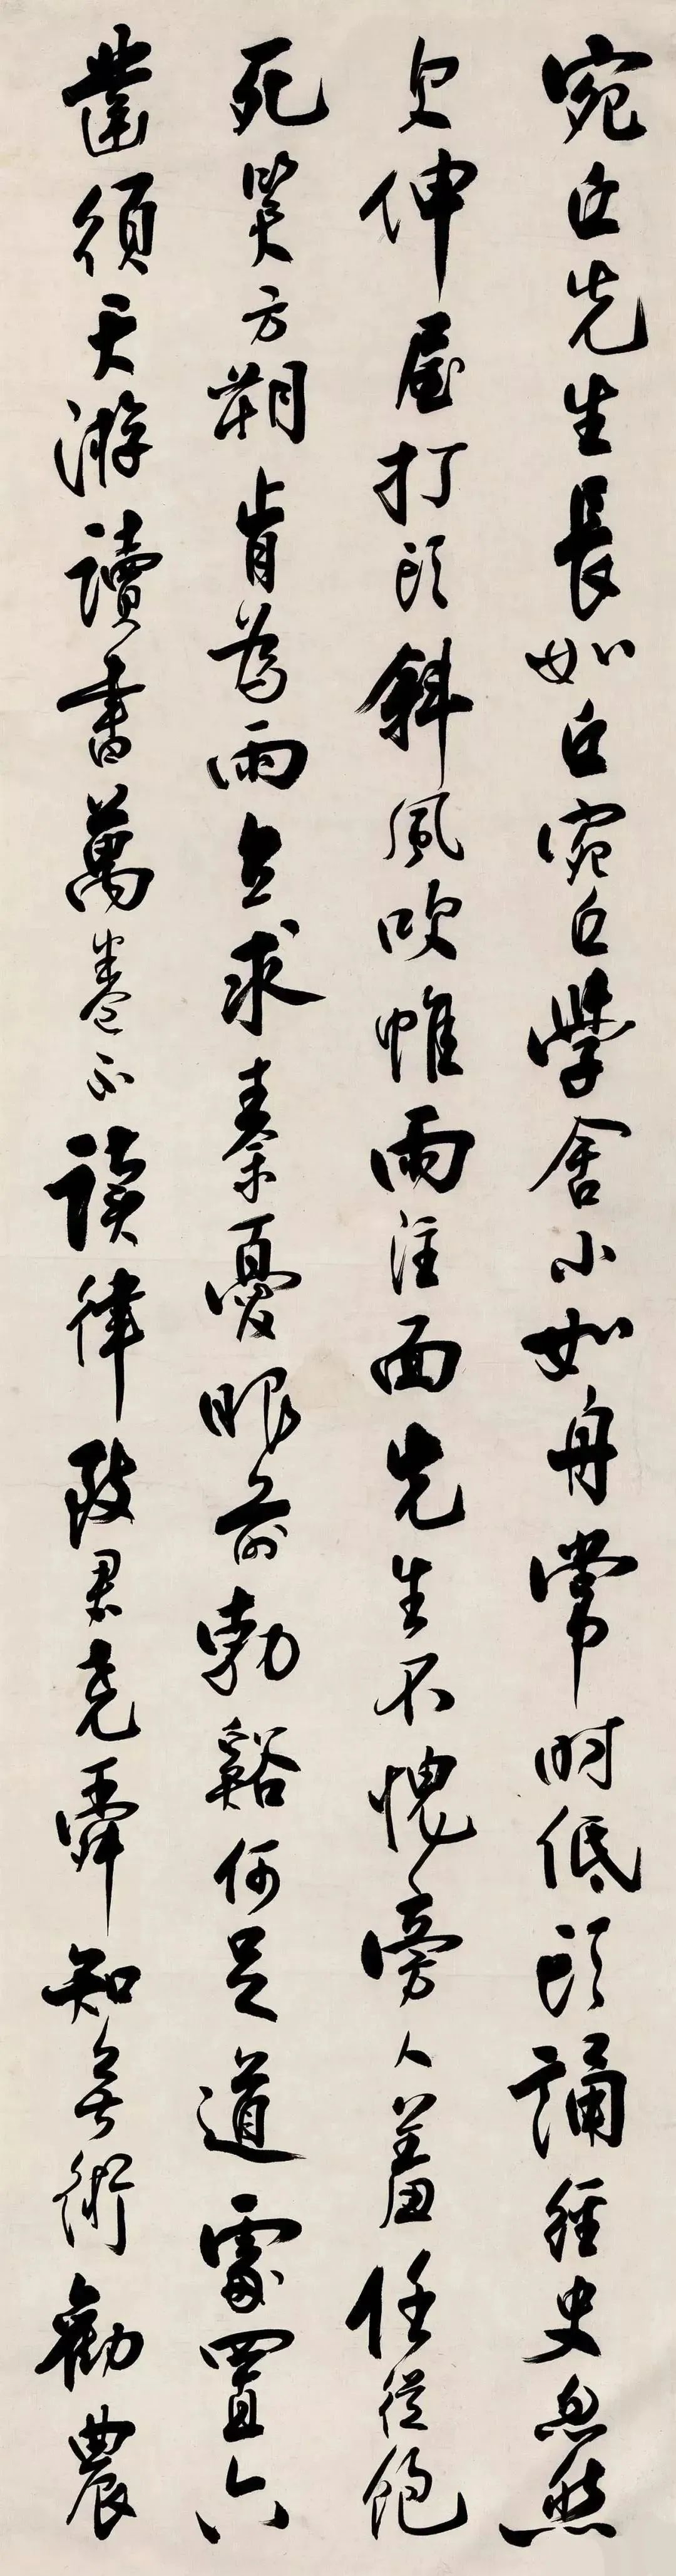 宛丘先生長如丘宛丘學舍小如舟常時低頭誦經史忽然
欠伸屋打頭斜風吹帷雨注面先生不愧旁人羞任從飽
死笑方朔肯為雨立求秦憂眼前勃谿何足道處置六
鑿須天游讀書萬卷不讀律致君堯舜知無術勸農